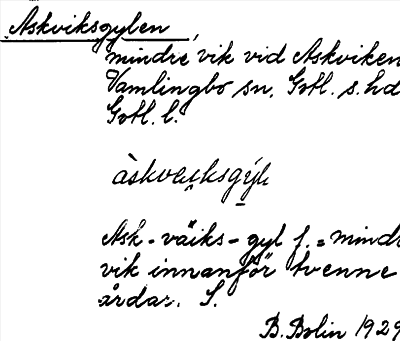 Askviksgylen,
mindre vik vid Askviken
Vamlingbo sn. Gotl. s. hd
Gotl. l.
àskveu̯ksgy̱l
Ask-väiks-gyl f. = mindr
vik innanför tvenne
årdar. S.
B. Bolin 1929